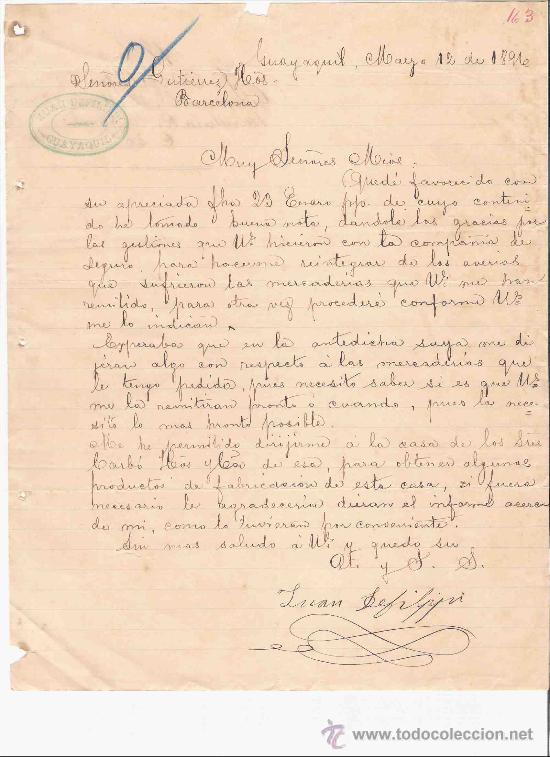 163
Guayaquil, Marzo 12 de 1896
Señores Gutiérrez Hos.
Barcelona
JUAN DEFILIPPI
GUAYAQUIL
Muy Señores Mios.
Quedé favorecido con
su apreciada fha 23 Enero ppo. de cuyo conteni
do he tomado buena nota, dandole las gracias por
las gestiones que Us. hicieron con la compañia de
seguro, para hacerme reintegrar de las averias
que sufrieron las mercaderias que Us. me han
remitido, para otra vez procederé conforme Us.
me lo indican.
Esperaba que en la antedicha suya me di
jeran algo con respecto á las mercaderias que
le tengo pedida, pues necesito saber si es que Us.
me la remitiran pronto ó cuando, pues la nece-
sito lo mas pronto posible.
Me he permitido dirijirme á la casa de los Sres
Carbó Hos y Ca de esa, para obtener algunos
productos de fabricacion de esta casa, si fuera
necesario le agradeceria dieran el informe acerca
de mi, como lo tuvieran por conveniente.
Sin mas saludo á Us. y quedo su
At. y S. S.
Juan Defilippi
www.todocoleccion.net